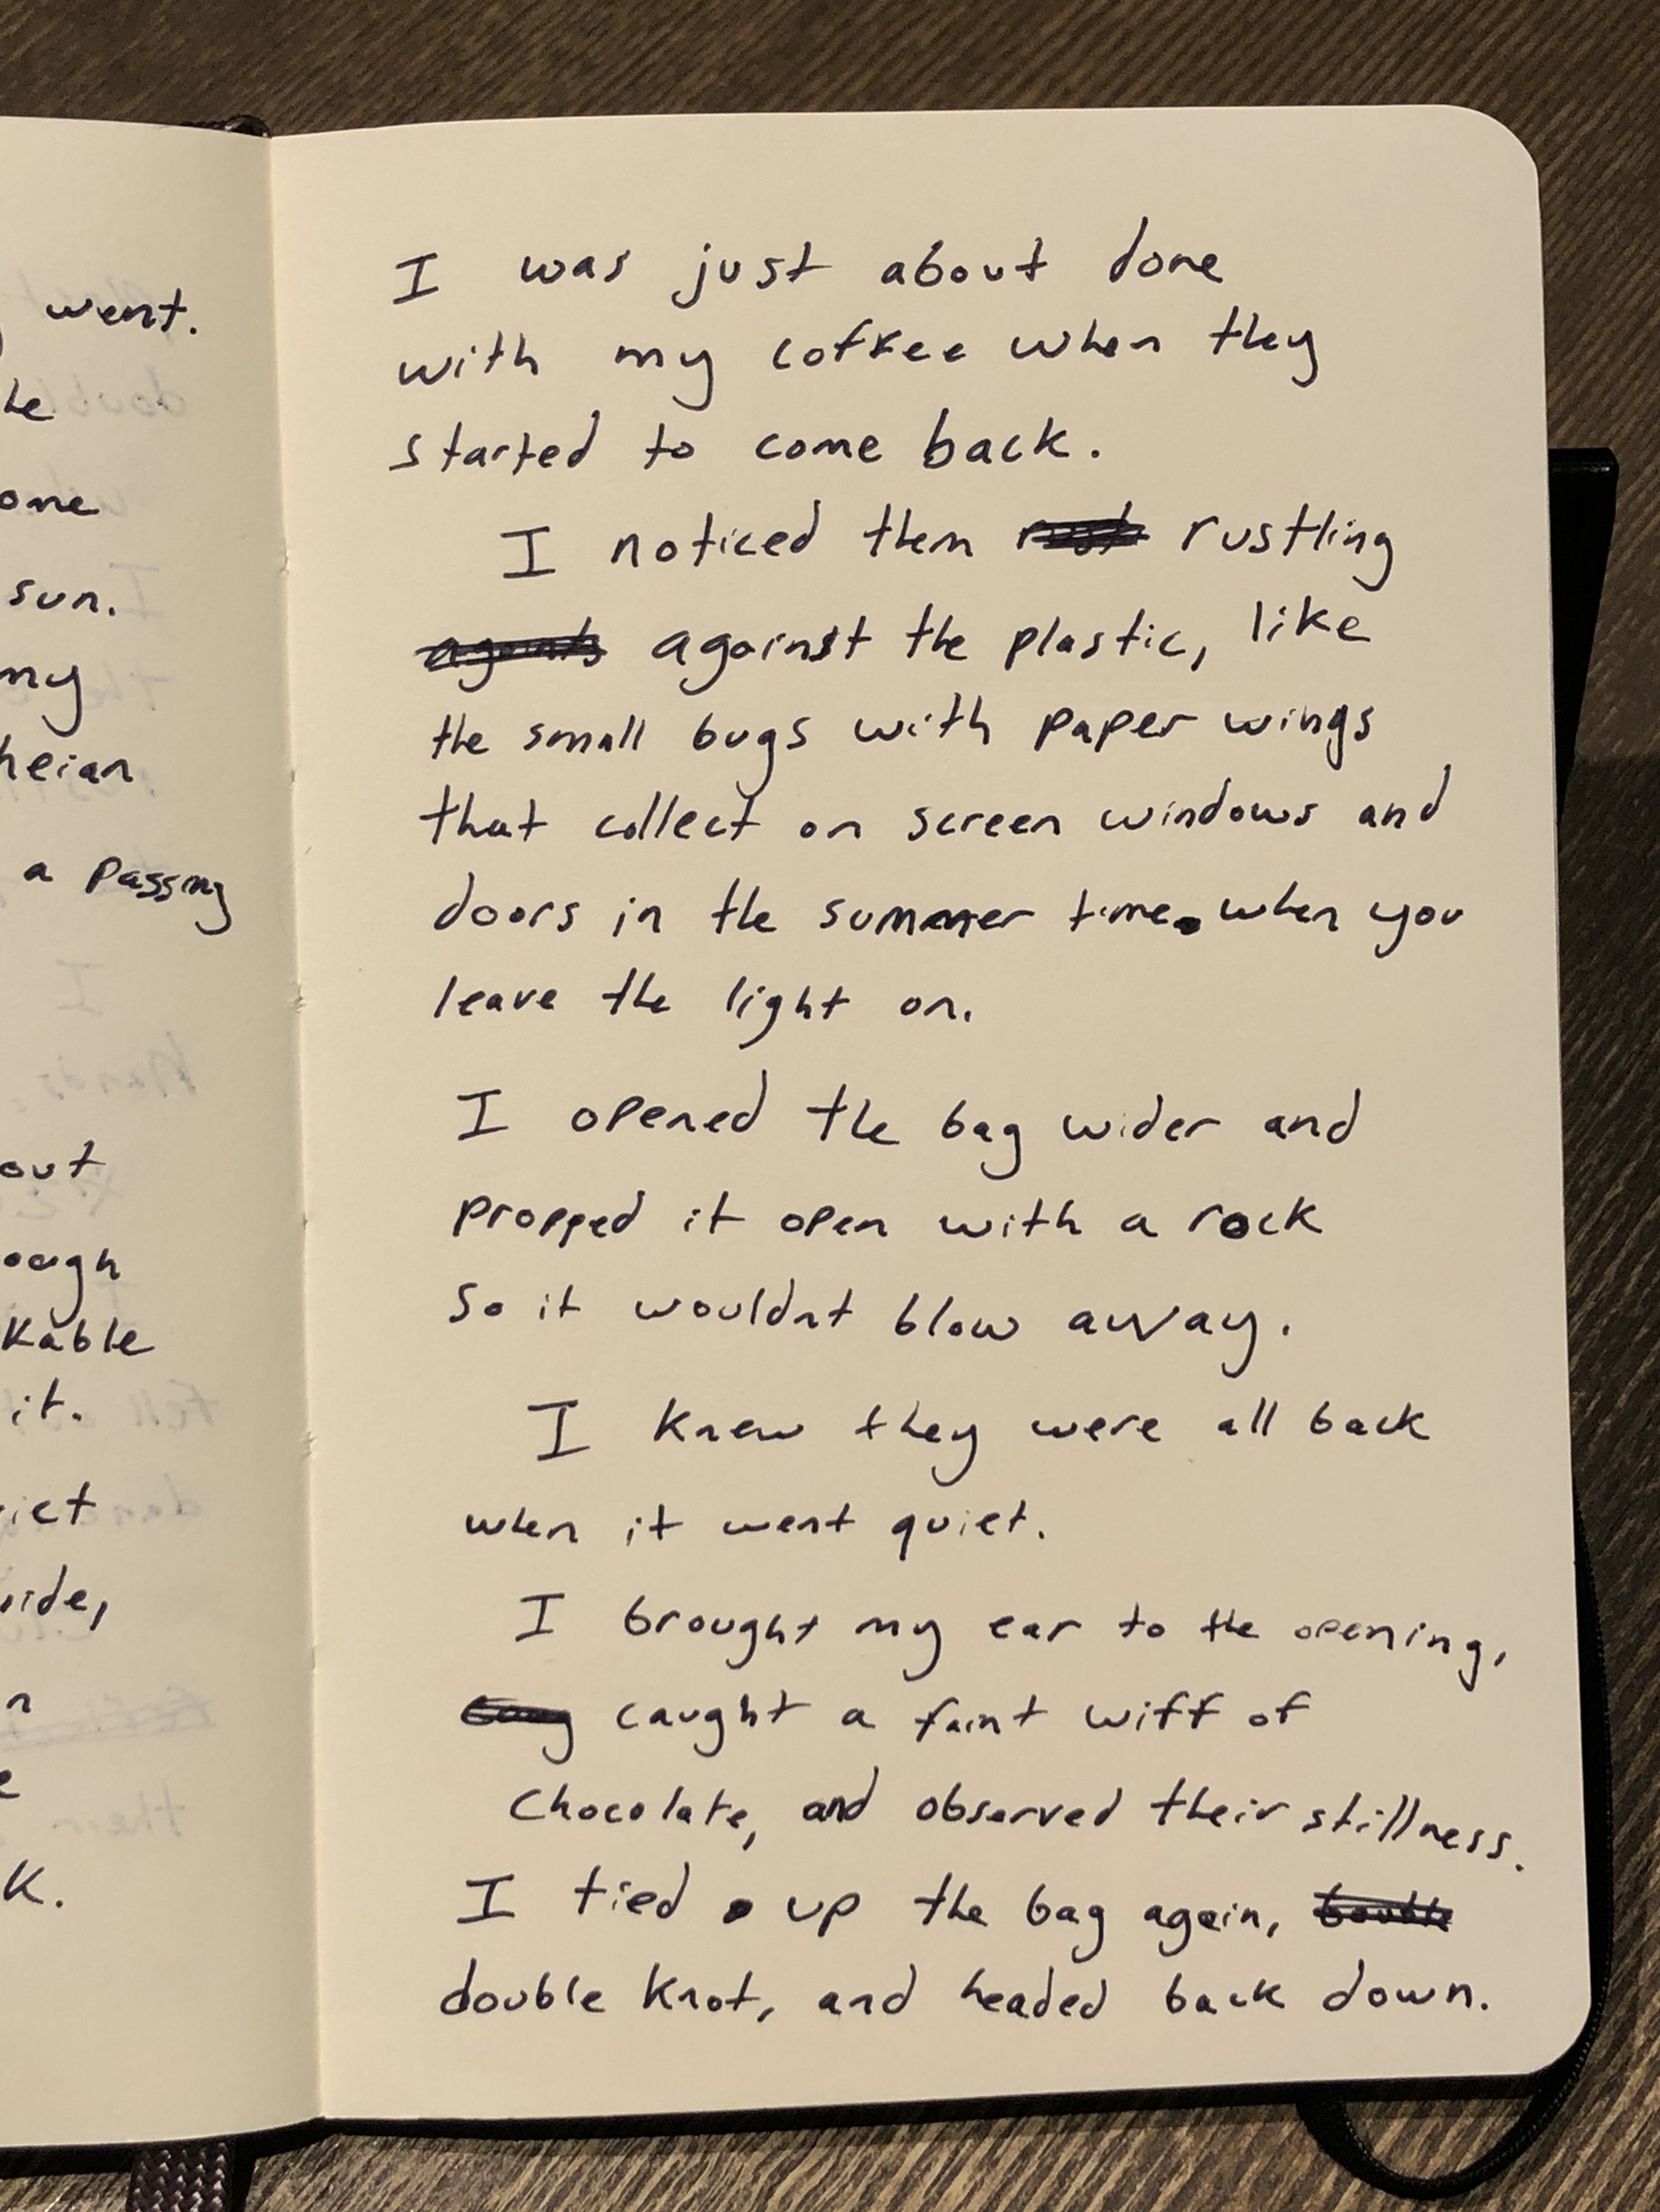 went.
one
sun.
my
a passing
out
it.
K.
I was just about done
with my coffee when they
started to come back.
I noticed them rustling
against the plastic, like
the small bugs with paper wings
that collect on screen windows and
doors in the summer time. when you
leave the light on.
I opened the bag wider and
propped it open with a rock
so it wouldnt blow away.
I knew they were all back
when it went quiet.
I brought my ear to the opening,
caught a faint wiff of
chocolate, and observed their stillness.
I tied up the bag again,
double knot, and headed back down.